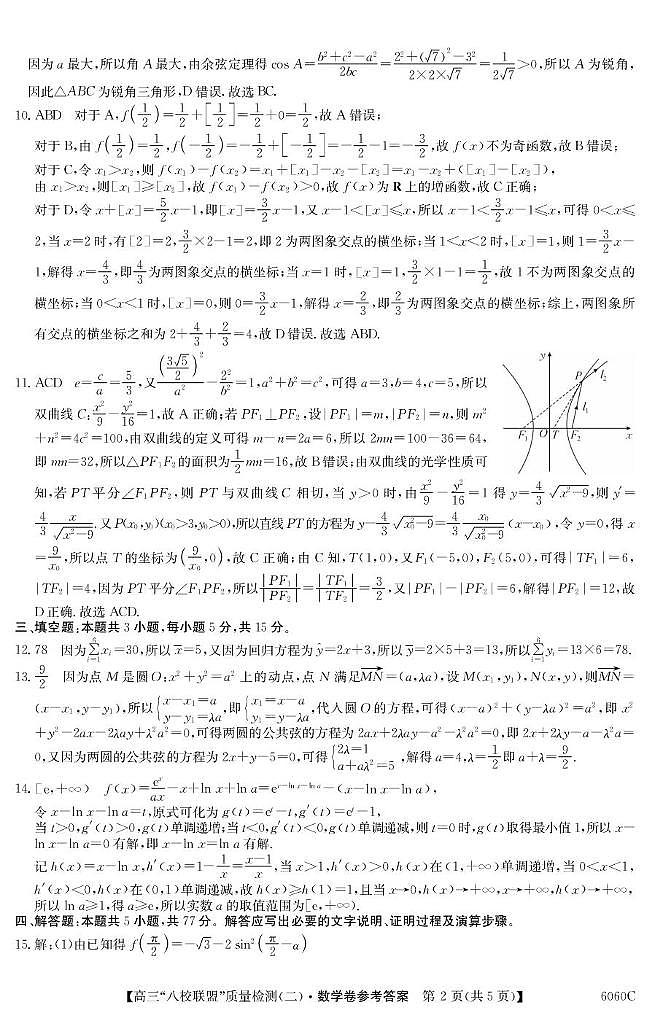 因为a最大,所以角A最大,由余弦定理得cos A=\frac{b²+c²-a²}{2bc}=\frac{2²+(√7)²-3²}{2×2×√7}=\frac{1}{2√7}>0,所以A为锐角,
因此△ABC为锐角三角形,D错误.故选BC.
10. ABD 对于A,f(\frac{1}{2})=\frac{1}{2}+[\frac{1}{2}]=\frac{1}{2}+0=\frac{1}{2},故A错误;
对于B,由f(\frac{1}{2})=\frac{1}{2},f(-\frac{1}{2})=-\frac{1}{2}+[-\frac{1}{2}]=-\frac{1}{2}-1=-\frac{3}{2},故f(x)不为奇函数,故B错误;
对于C,令x₁>x₂,则f(x₁)-f(x₂)=x₁+[x₁]-x₂-[x₂]=x₁-x₂+([x₁]-[x₂]),
由x₁>x₂,则[x₁]≥[x₂],故f(x₁)-f(x₂)>0,故f(x)为R上的增函数,故C正确;
对于D,令x+[x]=\frac{5}{2}x-1,即[x]=\frac{3}{2}x-1,又x-1<[x]≤x,所以x-1<\frac{3}{2}x-1≤x,可得0<x≤
2,当x=2时,有[2]=2,\frac{3}{2}×2-1=2,即2为两图象交点的横坐标;当1<x<2时,[x]=1,则1=\frac{3}{2}x-
1,解得x=\frac{4}{3},即\frac{4}{3}为两图象交点的横坐标;当x=1时,[x]=1,\frac{3}{2}×1-1=\frac{1}{2},故1不为两图象交点的
横坐标;当0<x<1时,[x]=0,则0=\frac{3}{2}x-1,解得x=\frac{2}{3},即\frac{2}{3}为两图象交点的横坐标;综上,两图象所
有交点的横坐标之和为2+\frac{4}{3}+\frac{2}{3}=4,故D错误.故选ABD.
11. ACD e=\frac{c}{a}=\frac{5}{3},又\frac{(\frac{3√5}{2})²}{a²}-\frac{2²}{b²}=1,a²+b²=c²,可得a=3,b=4,c=5,所以
双曲线C:\frac{x²}{9}-\frac{y²}{16}=1,故A正确;若PF₁⊥PF₂,设|PF₁|=m,|PF₂|=n,则m²
+n²=4c²=100,由双曲线的定义可得m-n=2a=6,所以2mn=100-36=64,
即mn=32,所以△PF₁F₂的面积为\frac{1}{2}mn=16,故B错误;由双曲线的光学性质可
y P l₂ l₁ F₁ O T F₂ x
知,若PT平分∠F₁PF₂,则PT与双曲线C相切,当y>0时,由\frac{x²}{9}-\frac{y²}{16}=1得y=\frac{4}{3}√(x²-9),则y′=
\frac{4}{3}\frac{x}{√(x²-9)}.又P(x₀,y₀)(x₀>3,y₀>0),所以直线PT的方程为y-\frac{4}{3}√(x₀²-9)=\frac{4}{3}\frac{x₀}{√(x₀²-9)}(x-x₀),令y=0,得x
=\frac{9}{x₀},所以点T的坐标为(\frac{9}{x₀},0),故C正确;由C知,T(1,0),又F₁(-5,0),F₂(5,0),可得|TF₁|=6,
|TF₂|=4,因为PT平分∠F₁PF₂,所以\frac{|PF₁|}{|PF₂|}=\frac{|TF₁|}{|TF₂|}=\frac{3}{2},又|PF₁|-|PF₂|=6,解得|PF₂|=12,故
D正确.故选ACD.
三、填空题:本题共3小题,每小题5分,共15分。
12. 78 因为\sum_{i=1}^{6}xᵢ=30,所以x̄=5,又因为回归方程为ŷ=2x+3,所以ȳ=2×5+3=13,所以\sum_{i=1}^{6}yᵢ=13×6=78.
13. \frac{9}{2} 因为点M是圆O:x²+y²=a²上的动点,点N满足\overrightarrow{MN}=(a,λa),设M(x₁,y₁),N(x,y),则\overrightarrow{MN}=
(x-x₁,y-y₁),所以{x-x₁=a, y-y₁=λa,即{x₁=x-a, y₁=y-λa,代入圆O的方程,可得(x-a)²+(y-λa)²=a²,即x²
+y²-2ax-2λay+λ²a²=0,可得两圆的公共弦的方程为2ax+2λay-a²-λ²a²=0,即2x+2λy-a-λ²a=
0,又因为两圆的公共弦的方程为2x+y-5=0,可得{2λ=1 a+aλ²=5,解得a=4,λ=\frac{1}{2}即a+λ=\frac{9}{2}.
14. [e,+∞) f(x)=\frac{eˣ}{ax}-x+ln x+ln a=e^{x-ln x-ln a}-(x-ln x-ln a),
令x-ln x-ln a=t,原式可化为g(t)=eᵗ-t,g′(t)=eᵗ-1,
当t>0,g′(t)>0,g(t)单调递增;当t<0,g′(t)<0,g(t)单调递减,则t=0时,g(t)取得最小值1,所以x-
ln x-ln a=0有解,即x-ln x=ln a有解.
记h(x)=x-ln x,h′(x)=1-\frac{1}{x}=\frac{x-1}{x},当x>1,h′(x)>0,h(x)在(1,+∞)单调递增,当0<x<1,
h′(x)<0,h(x)在(0,1)单调递减,故h(x)≥h(1)=1,且当x→0,h(x)→+∞,x→+∞,h(x)→+∞,
所以ln a≥1,得a≥e,所以实数a的取值范围为[e,+∞).
四、解答题:本题共5小题,共77分。解答应写出必要的文字说明、证明过程及演算步骤。
15. 解:(1)由已知得f(\frac{π}{2})=-√3-2sin²(\frac{π}{2}-a)
【高三“八校联盟”质量检测(二)·数学卷参考答案 第2页(共5页)】 6060C